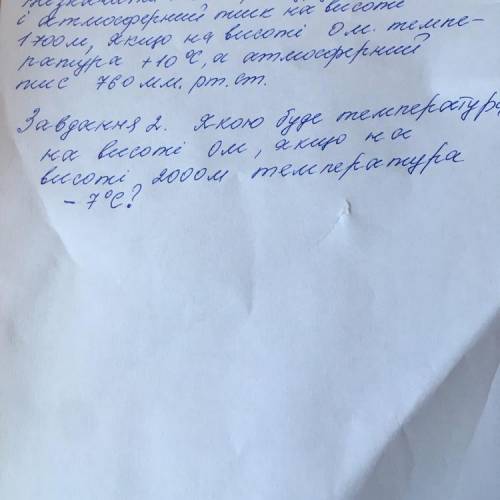 і атмосферний тиск на висоті
1700м, якщо на висоті 0м. темпе-
ратура +10°С, а атмосферний
тис 760 мм. рт. ст.
Завдання 2. Якою буде температура
на висоті 0м, якщо на
висоті 2000м температура
- 7°С?